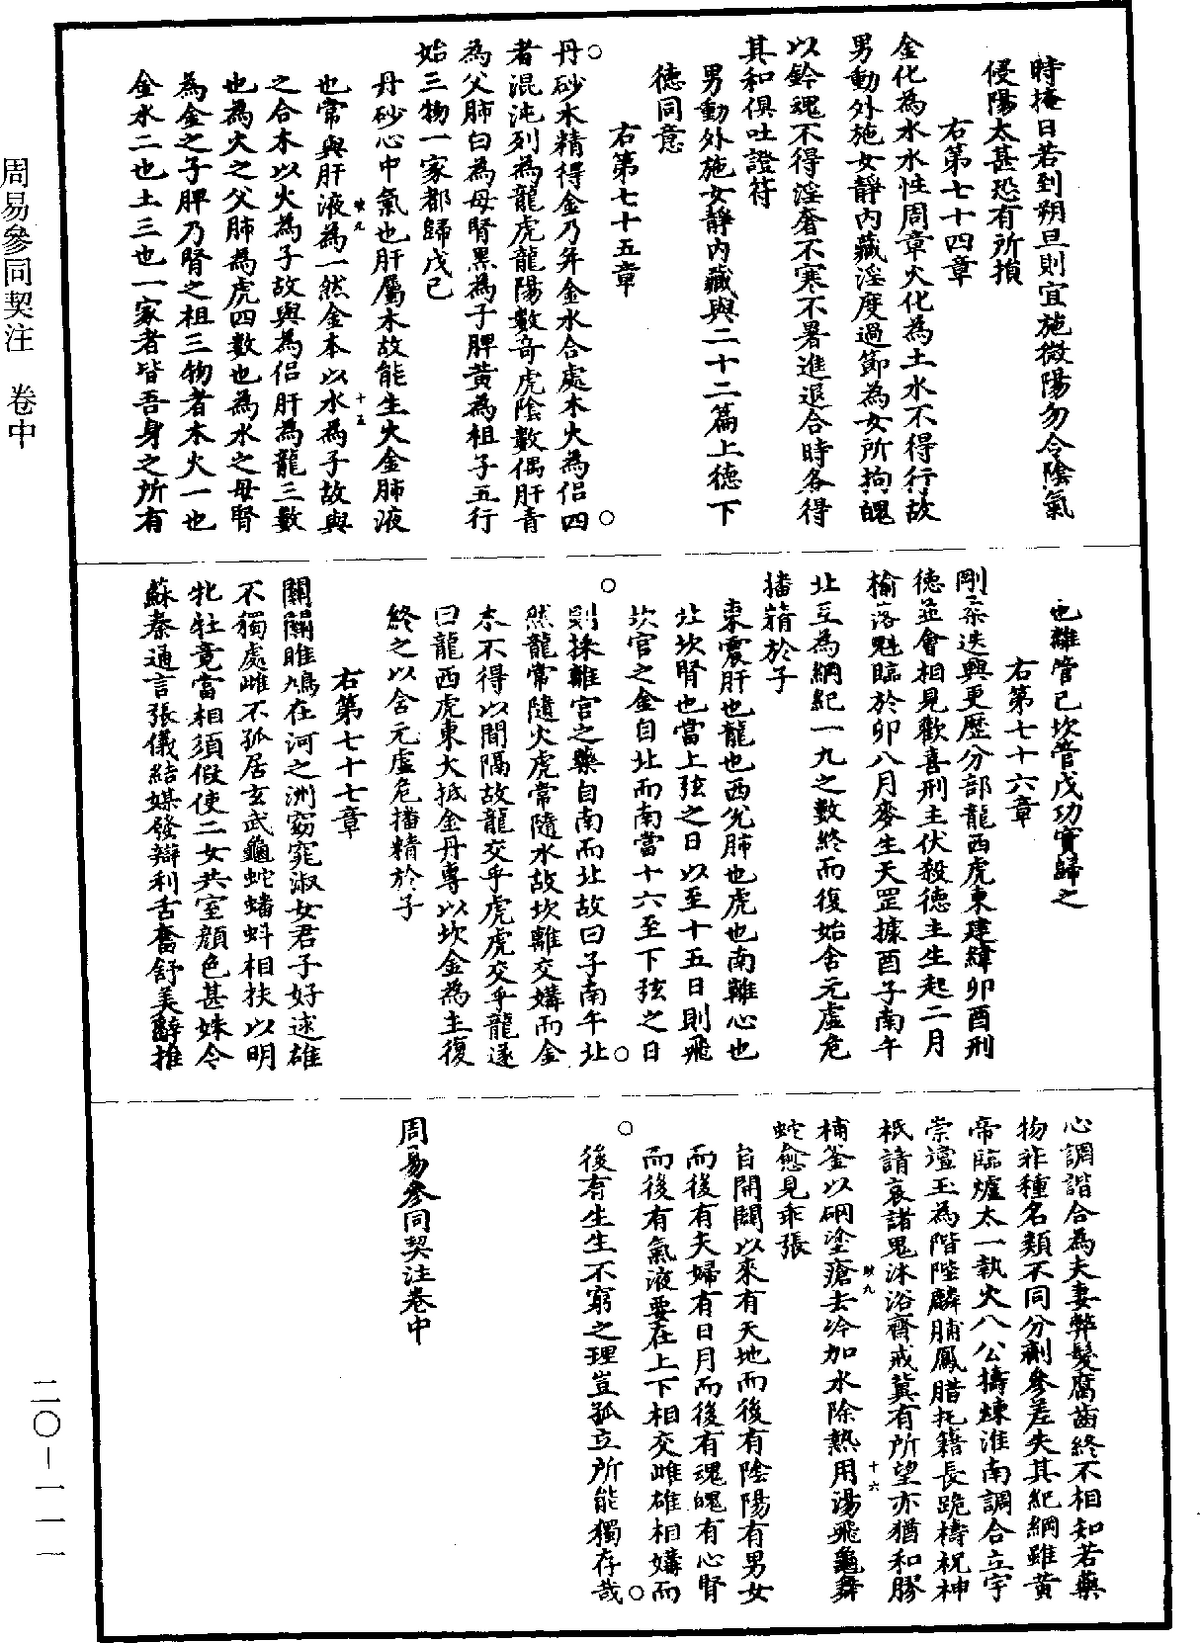 周易參同契注　卷中
二〇-一一一
時掩日若到朔旦則宜施微陽勿令陰氣
侵陽太甚恐有所損
右第七十四章
金化為水水性周章火化為土水不得行故
男動外施女靜內藏淫度過節為女所拘魄
以鈐魂不得淫奢不寒不暑進退合時各得
其和俱吐證符
男動外施女靜內藏與二十二篇上德下
德同意
右第七十五章
丹砂木精得金乃并金水合處木火為侶四
者混沌列為龍虎龍陽數奇虎陰數偶肝青
為父肺白為母腎黑為子脾黃為祖子五行
始三物一家都歸戊己
丹砂心中氣也肝屬木故能生火金肺液
也常與肝液為一然金本以水為子故與
之合木以火為子故與為侶肝為龍三數
也為火之父肺為虎四數也為水之母腎
為金之子脾乃腎之祖三物者木火一也
金水二也土三也一家者皆吾身之所有
也離管己坎管戊功實歸之
右第七十六章
剛柔迭興更歷分部龍西虎東建緯卯酉刑
德並會相見歡喜刑主伏殺德主生起二月
榆落魁臨於卯八月麥生天罡據酉子南午
北互為綱紀一九之數終而復始含元虛危
播精於子
東震肝也龍也西兌肺也虎也南離心也
北坎腎也當上弦之日以至十五日則飛
坎宮之金自北而南當十六至下弦之日
則採離宮之藥自南而北故曰子南午北
然龍常隨火虎常隨水故坎離交媾而金
木不得以間隔故龍交乎虎虎交乎龍遂
曰龍西虎東大抵金丹專以坎金為主復
終之以含元虛危播精於子
右第七十七章
關關雎鳩在河之洲窈窕淑女君子好逑雄
不獨處雌不孤居玄武龜蛇蟠蚪相扶以明
牝牡竟當相須假使二女共室顏色甚姝令
蘇秦通言張儀結媒發辯利舌奮舒美辭推
心調諧合為夫妻弊髮腐齒終不相知若藥
物非種名類不同分劑參差失其紀綱雖黃
帝臨爐太一執火八公擣煉淮南調合立宇
崇壇玉為階陛麟脯鳳腊把籍長跪禱祝神
祇請哀諸鬼沐浴齋戒冀有所望亦猶和膠
補釜以硇塗瘡去冷加冰除熱用湯飛龜舞
蛇愈見乖張
自開闢以來有天地而後有陰陽有男女
而後有夫婦有日月而後有魂魄有心腎
而後有氣液要在上下相交雌雄相媾而
後有生生不窮之理豈孤立所能獨存哉
周易參同契注卷中